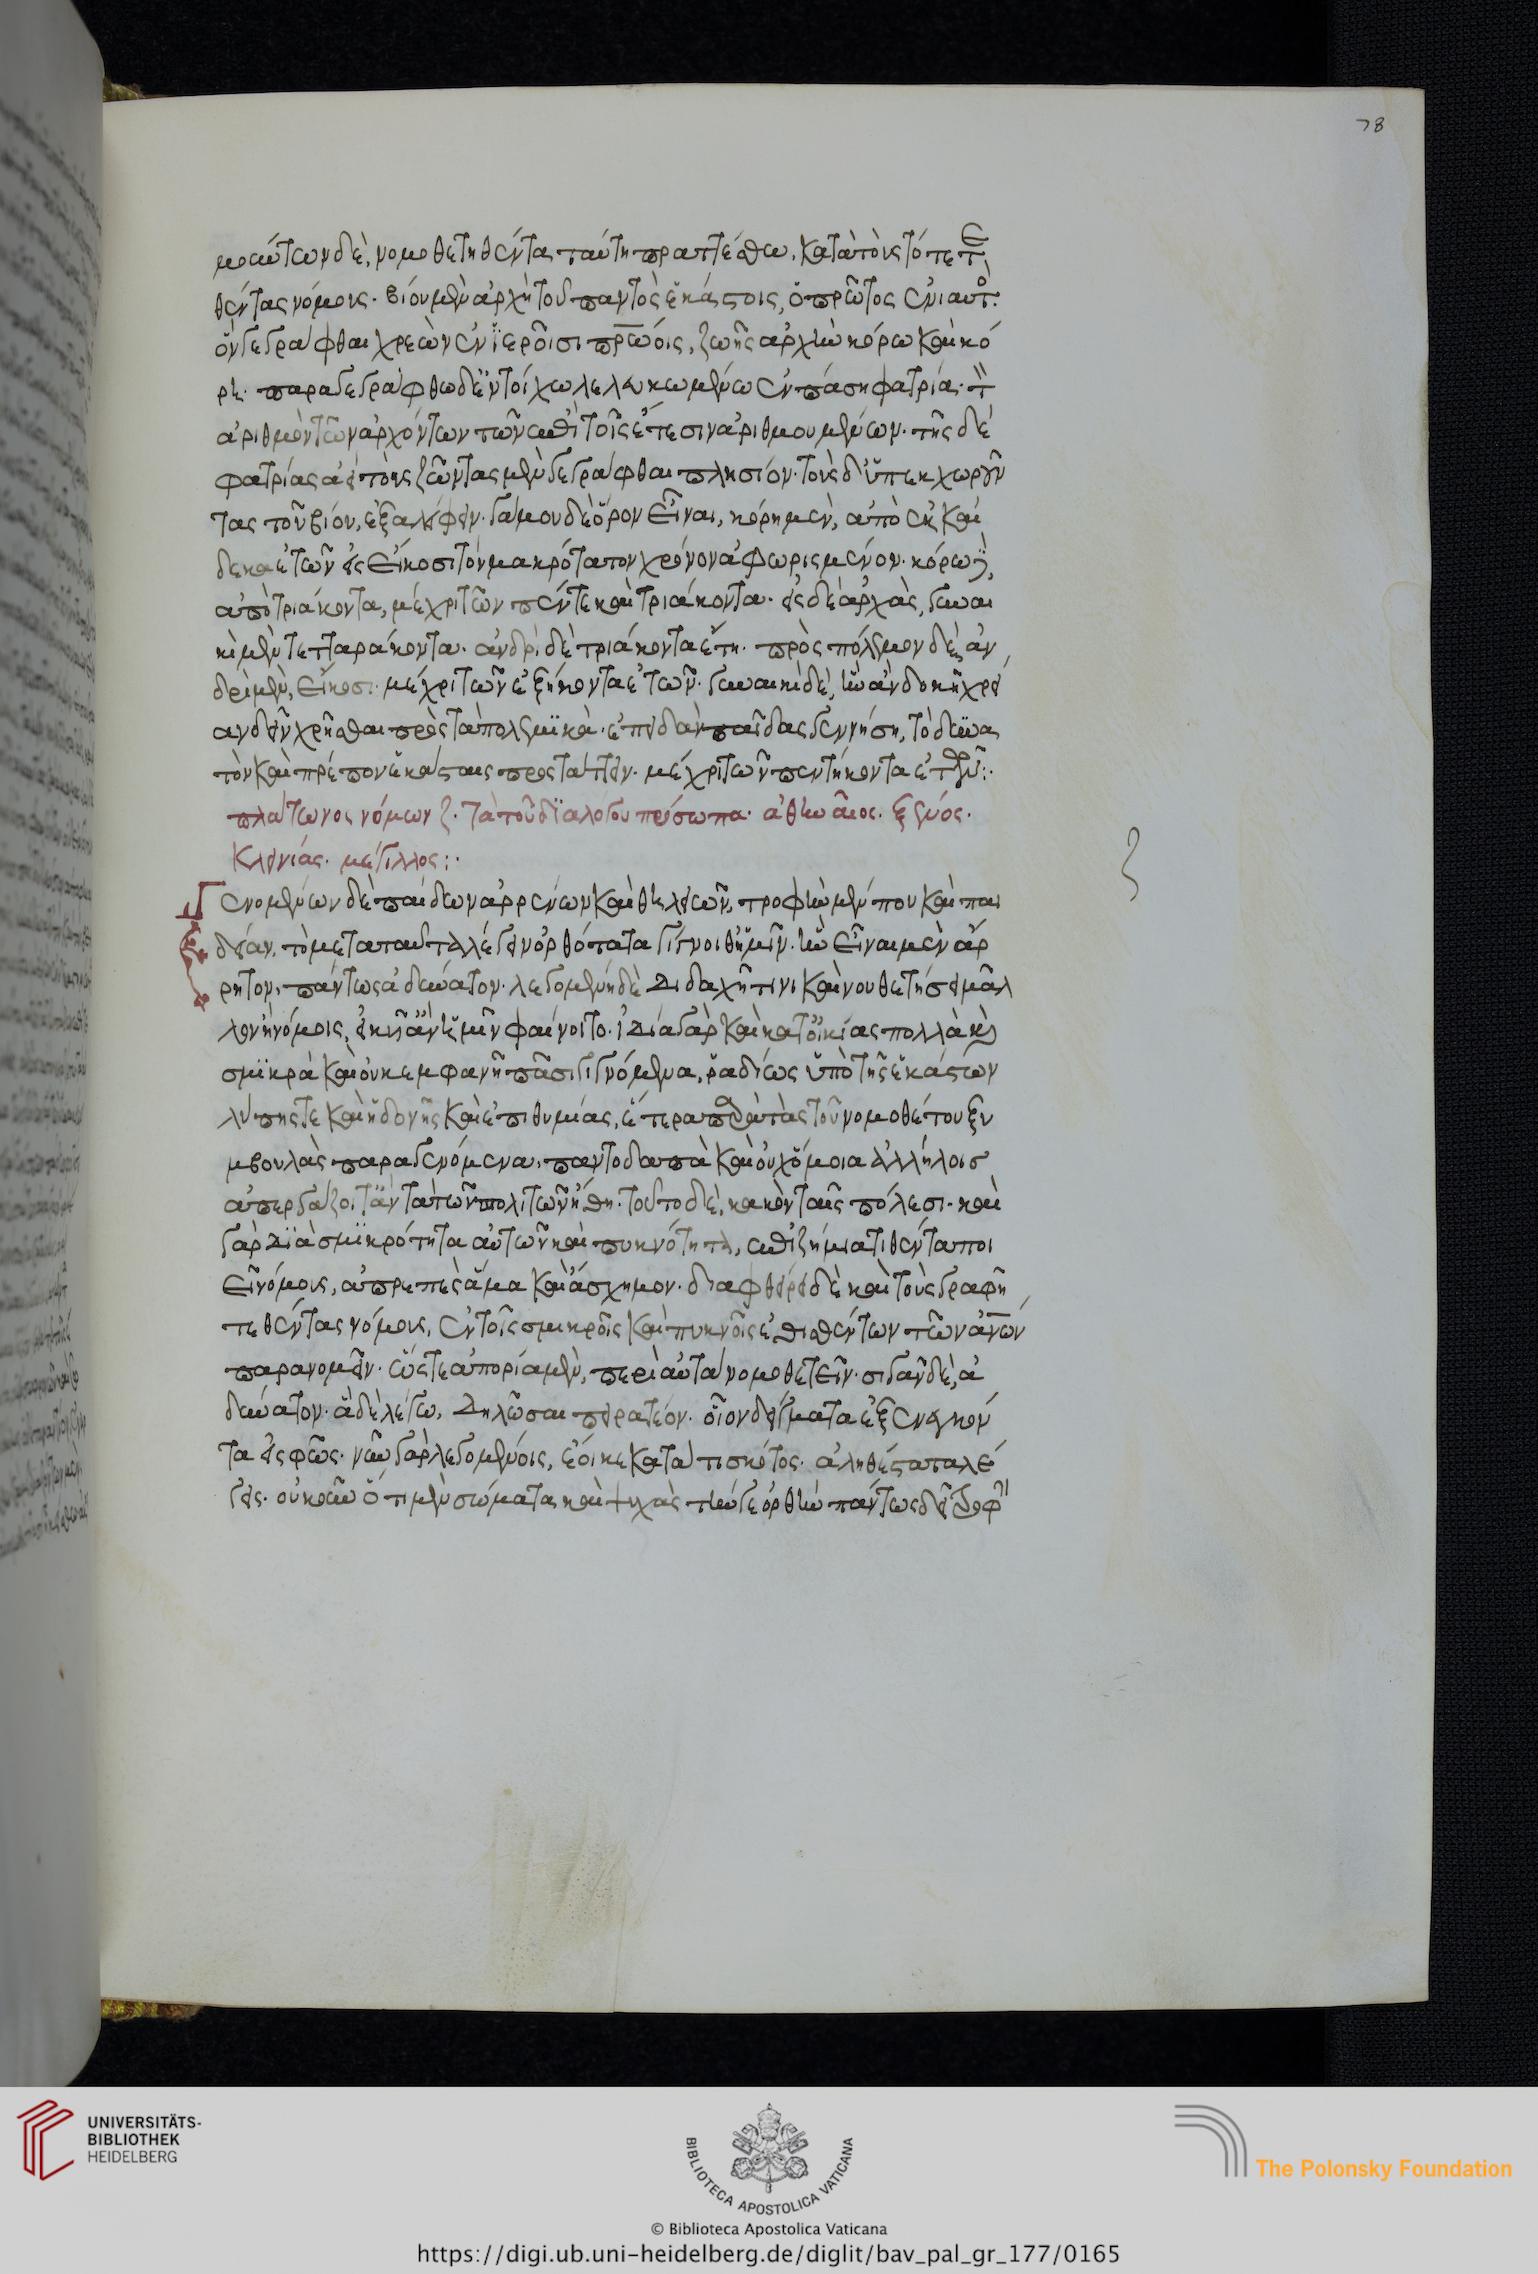 78
μούντων δὲ, νομοθετηθέντα ταύτῃ πραττέσθω, κατὰ τοὺς τότε τε
θέντας νόμους. βίου μὲν ἀρχὴ τοῦ παντὸς ἑκάστοις, ὁ πρῶτος ἐνιαυτός.
ὃν γεγράφθαι χρεὼν ἐν ἱεροῖσι πρώοις, ζωῆς ἀρχὴν κόρῳ καὶ κό
ρῃ. παραγεγράφθω δ' ἐν τοίχῳ λελευκωμένῳ ἐν πάσῃ φατρίᾳ. τὸν
ἀριθμὸν τῶν ἀρχόντων τῶν ἐπὶ τοῖς ἔτεσιν ἀριθμουμένων. τῆς δὲ
φατρίας ἀεὶ τοὺς ζῶντας μὲν γεγράφθαι πλησίον. τοὺς δ' ὑπεκχωροῦν
τας τοῦ βίου, ἐξαλείφειν. γάμου δὲ ὅρον εἶναι, κόρῃ μὲν, ἀπὸ ἓκ καὶ
δεκα ἐτῶν εἰς εἴκοσι τὸν μακρότατον χρόνον ἀφωρισμένον. κόρῳ δὲ,
ἀπὸ τριάκοντα, μέχρι τῶν πέντε καὶ τριάκοντα. εἰς δὲ ἀρχὰς, γυναι
κὶ μὲν τετταράκοντα. ἀνδρὶ δὲ τριάκοντα ἔτη. πρὸς πόλεμον δὲ, ἀν
δρὶ μὲν, εἴκοσι. μέχρι τῶν ἑξήκοντα ἐτῶν. γυναικὶ δὲ, ἣν ἂν δοκῇ χρεί
αν δεῖν χρῆσθαι πρὸς τὰ πολεμικὰ. ἐπειδὰν παῖδας γεννήσῃ, τὸ δυνα
τὸν καὶ πρέπον ἑκάσταις προστάττειν. μέχρι τῶν πεντήκοντα ἐτῶν:·
πλάτωνος νόμων ζ. τὰ τοῦ διαλόγου πρόσωπα. ἀθηναῖος. ξένος.
κλεινίας. μέγιλλος:·
Γενομένων δὲ παίδων ἀρρένων καὶ θηλειῶν, τροφὴν μέν που καὶ παι
δείαν, τὸ μετὰ ταῦτα λέγειν ὀρθότατα γίγνοιθ' ἡμῖν. ἣν εἶναι μὲν ἄρ
ρητον, πάντως ἀδύνατον. λεγομένη δὲ διδαχῇ τινι καὶ νουθετήσει μᾶλ
λον ἢ νόμοις, εἰκυῖ' ἂν ἡμῖν φαίνοιτο. ἰδίᾳ γὰρ καὶ κατ' οἰκίας πολλὰ καὶ
σμικρὰ καὶ οὐκ ἐμφανῆ πᾶσι γιγνόμενα, ῥᾳδίως ὑπὸ τῆς ἑκάστων
λύπης τε καὶ ἡδονῆς καὶ ἐπιθυμίας, ἕτερα παρὰ τὰς τοῦ νομοθέτου ξυ
μβουλὰς παραγενόμενα, παντοδαπὰ καὶ οὐχ ὅμοια ἀλλήλοισ
ἀπεργάζοιτ' ἂν τὰ τῶν πολιτῶν ἤθη. τοῦτο δὲ, κακὸν ταῖς πόλεσι. καὶ
γὰρ διὰ σμικρότητα αὐτῶν καὶ πυκνότητα, ἐπιζήμια τιθέντα ποι
εῖν νόμους, ἀπρεπὲς ἅμα καὶ ἄσχημον. διαφθείρει δὲ καὶ τοὺς γραφῇ
τεθέντας νόμους, ἐν τοῖς σμικροῖς καὶ πυκνοῖς ἐθισθέντων τῶν ἀνων
παρανομεῖν. ὥστε ἀπορία μὲν, περὶ αὐτὰ νομοθετεῖν. σιγᾶν δὲ, ἀ
δύνατον. ἃ δὲ λέγω, δηλῶσαι πειρατέον. οἷον δείγματα ἐξενεγκόν
τα εἰς φῶς. νῦν γὰρ λεγομένοις, ἔοικε κατά τι σκότος. ἀληθέστατα λέ
γεις. οὐκοῦν ὅτι μὲν σώματα καὶ ψυχὰς τήν γε ὀρθὴν πάντως δεῖ τροφὴν
ζ
UNIVERSITÄTS-
BIBLIOTHEK
HEIDELBERG
BIBLIOTECA APOSTOLICA VATICANA
The Polonsky Foundation
© Biblioteca Apostolica Vaticana
https://digi.ub.uni-heidelberg.de/diglit/bav_pal_gr_177/0165